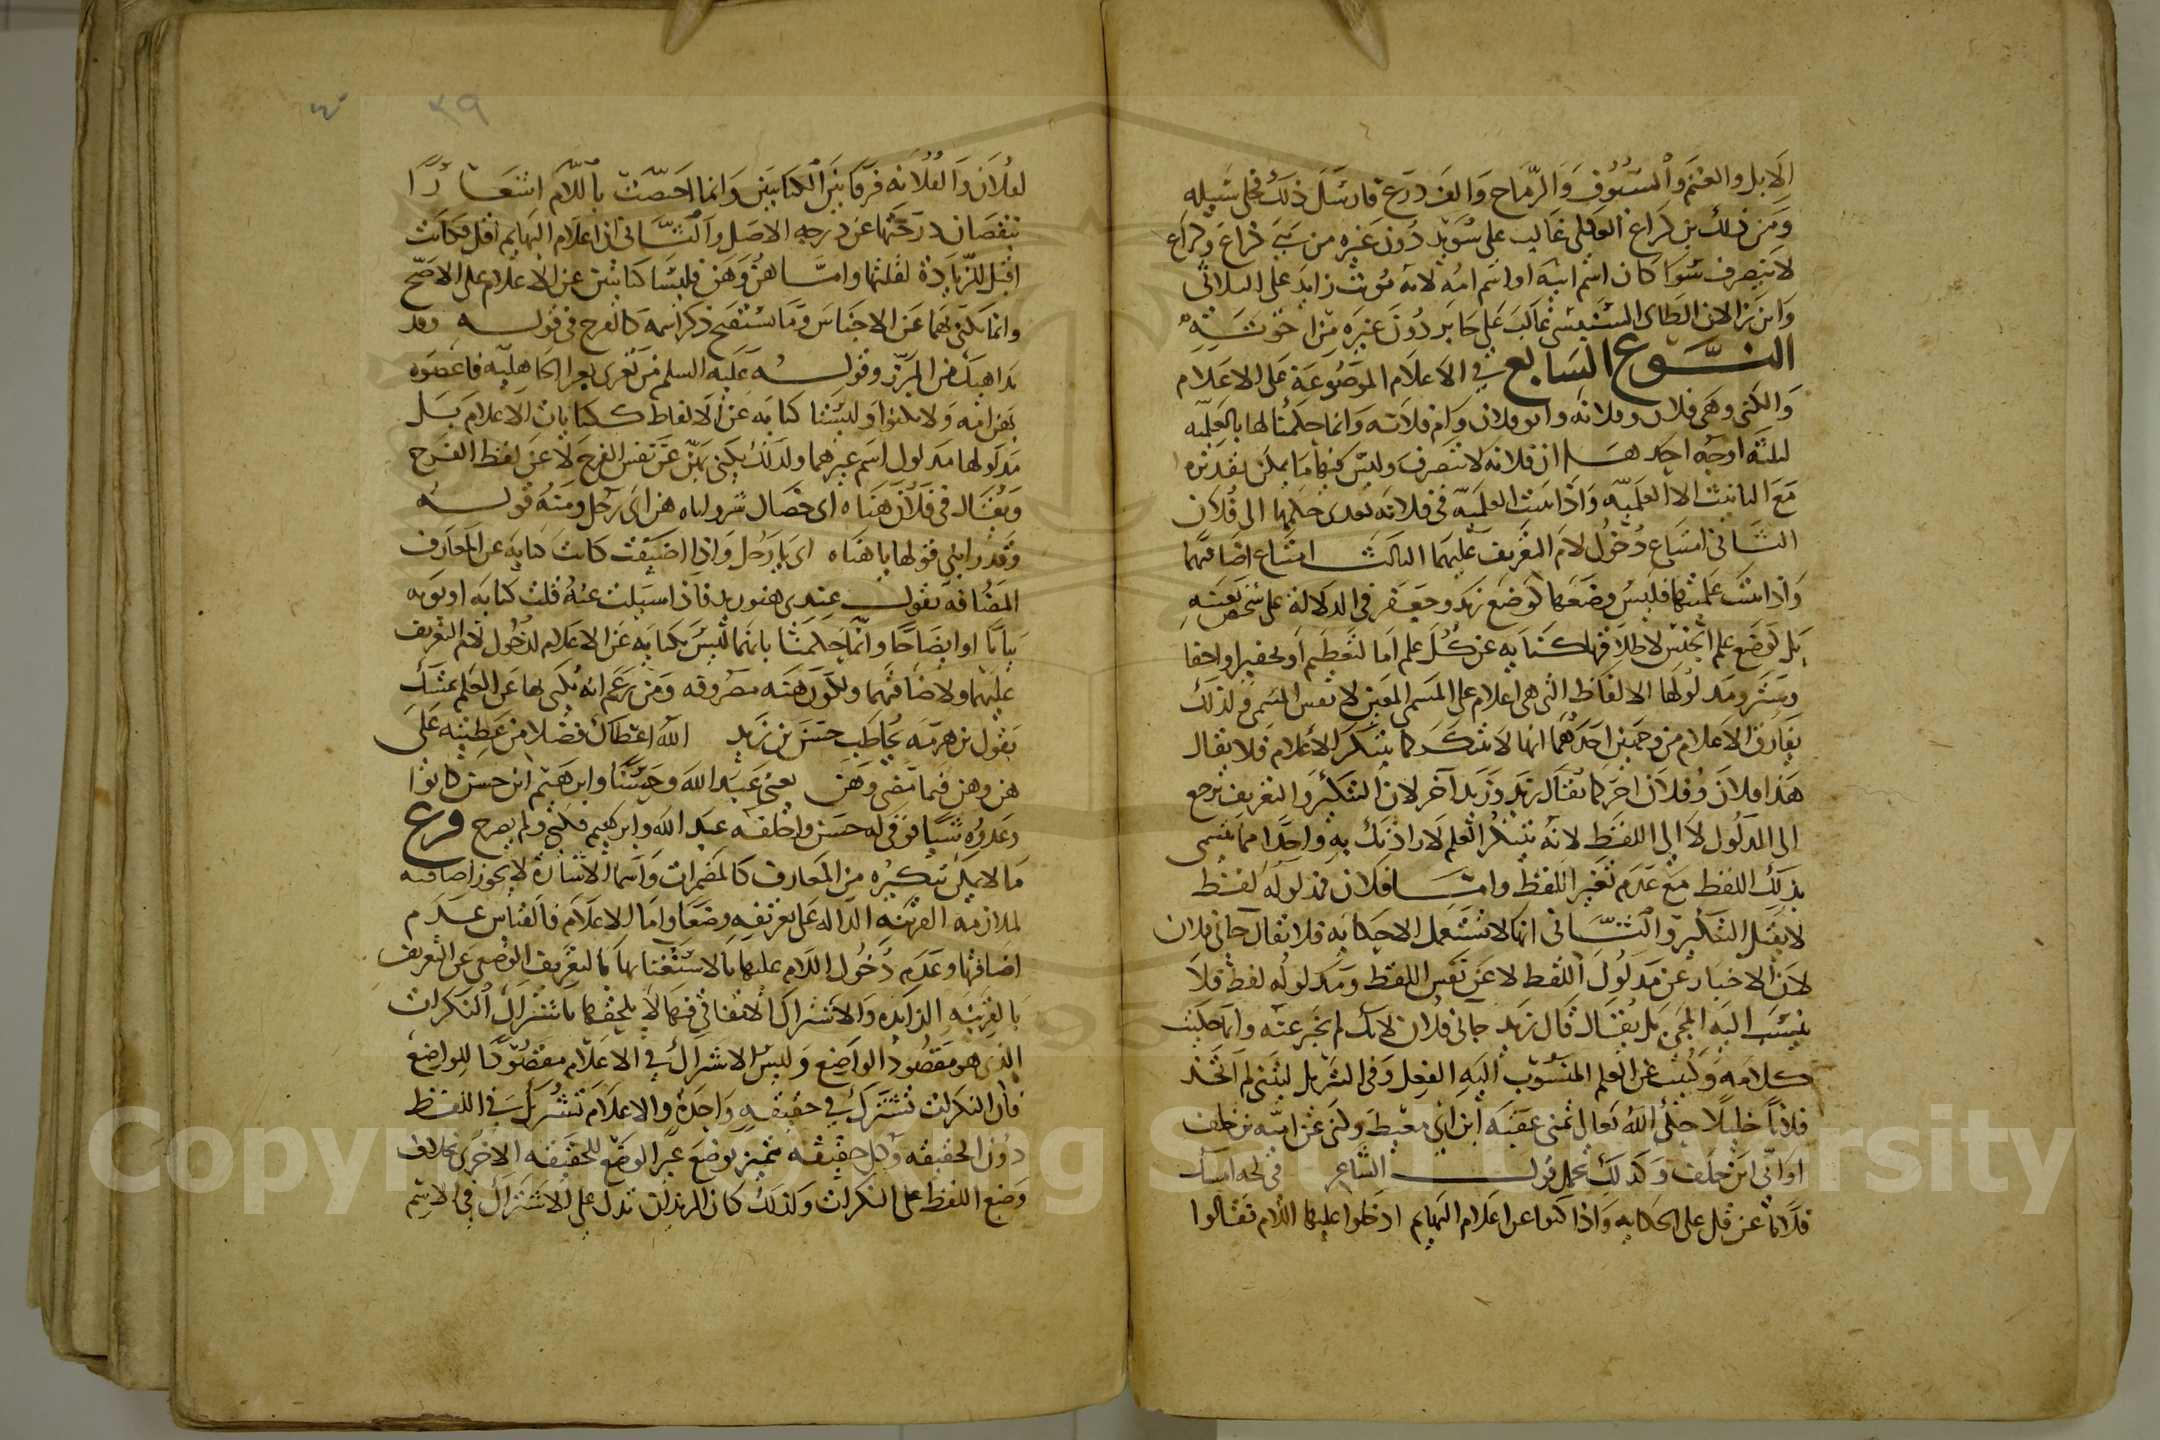 الابل والغنم والسيوف والرماح والف درع فارسل ذلك فخلى سبيله
ومن ذلك بن كراع العكلى غالب على سويد دون غيره من بنى كراع وكراع
لا ينصرف سوا كان اسم ابيه او اسم امه لانه مونث زايد على الثلاثى
وابن رالان الطاى السنبسى غالب على جابر دون غيره من اخوته
النوع السابع فى الاعلام الموضوعة على الاعلام
والكنى وهى فلان وفلانه وابو فلان وام فلانه وانما حكمنا لها بالعلميه
لثلثه اوجه احدها ان فلانه لا تنصرف وليس فيها ما يمكن تقديره
مع التانيث الا العلميه واذا ثبتت العلميه فى فلانه تعدى حكمها الى فلان
الثانى امتناع دخول لام التعريف عليهما الثالث امتناع اضافتهما
واذا ثبتت علميتهما فليس وضعهما كوضع زيد وجعفر فى الدلالة على شخص بعينه
بل كوضع علم الجنس لاطلاقهما كنايه عن كل علم اما لتعظيم او تحقير او اخفا
وستر ومدلولها الالفاظ التى هى اعلام على المسمى المعين لا نفس المسمى فلذلك
يفارق الاعلام من وجهين احدهما انها لا تتنكر كما يتنكر الاعلام فلا يقال
هذا فلان وفلان اخر كما يقال زيد وزيد آخر لان التنكير والتعريف يرجع
الى المدلول لا الى اللفظ لانه يتنكر العلم لارادتك به واحدا مما يسمى
بذلك اللفظ مع عدم تغير اللفظ واما فلان فمدلوله لفظ
لا يقبل التنكير والثانى انها لا تستعمل الا حكايه فلا يقال جانى فلان
لان الاخبار عن مدلول اللفظ لا عن نفس اللفظ ومدلوله لفظ فلا
ينسب اليه المجى بل يقال قال زيد جانى فلان لانك لم تخبر عنه وانما حكيت
كلامه وكنيت عن العلم المنسوب اليه الفعل وفى التنزيل ليتنى لم اتخذ
فلانا خليلا حكى الله تعالى تمنى عقبه ابن ابى معيط وكنى عن اميه بن خلف
او ابى ابن خلف وكذلك يحمل قول الشاعر فى لجه امسك
فلانا عن فل على الحكايه واذا كنوا عن اعلام البهايم ادخلوا عليها اللام فقالوا
الفلان والفلانه فرقا بين الكنايتين وانما اختصت باللام اشعارا
بنقصان درجتها عن درجه الاصل والثانى ان اعلام البهايم اقل فكانت
اقبل للزيادة لقلتها واما هن وهن فليسا كنايتين عن الاعلام على الاصح
وانما يكنى بهما عن الاجناس وما يستقبح ذكر اسمه كالفرج فى قوله وقد
بدا هنك من المئزر وقوله عليه السلم من تعزى بعزا الجاهليه فاعضوه
بهن ابيه ولا تكنوا وليستا كنايه عن الالفاظ ككنايات الاعلام بل
مدلولها مدلول اسم غيرهما ولذلك يكنى بهن عن نفس الفرج لا عن لفظ الفرج
ويقال فى فلان هناة اى خصال شر هن اى رجل ومنه قوله
وقد رابنى قولها يا هناه اى يا رجل واذا اضيفت كانت كنايه عن المعارف
المضافه يقول عندى هنو زيد فاذا سيلت عنه قلت كنايه او
بيانا او ايضاحا وانما حكمنا بانهما ليس بكنايه عن الاعلام لدخول لام التعريف
عليهما ولاضافتهما ولكون هنه مصروفه ومن زعم انه يكنى بها عن العلم تمسك
بقول بن هرمه يخاطب حسن بن زيد الله اعطاك فضلا من عطيته على
هن وهن فيما مضى وهن يعنى عبد الله وحسنا وابرهيم ابن حسن كانوا
وعدوه شيا فوفى له حسن واخلفه عبد الله وابرهيم فكنى ولم يصرح فرع
ما لا يمكن تنكيره من المعارف كالمضمرات واسما الاشارة لا يجوز اضافته
لملازمه القرينه الداله على تعريفه وضعا واما الاعلام فالقياس عدم
اضافتها وعدم دخول اللام عليها بالاستغنا بها بالتعريف الوضعى عن التعريف
بالقرينه الزايده والاشتراك الاتفاقى فيها لا يلحقها باشتراك النكرات
الذى هو مقصود الواضع وليس الاشتراك فى الاعلام مقصودا للواضع
فان النكرات تشترك فى حقيقه واحدة والاعلام تشترك فى اللفظ
دون الحقيقه وكل حقيقه تتميز بوضع غير الوضع للحقيقه الاخرى بخلاف
وضع اللفظ على النكرات ولذلك كان الزيدان تدل على الاشتراك فى الاسم